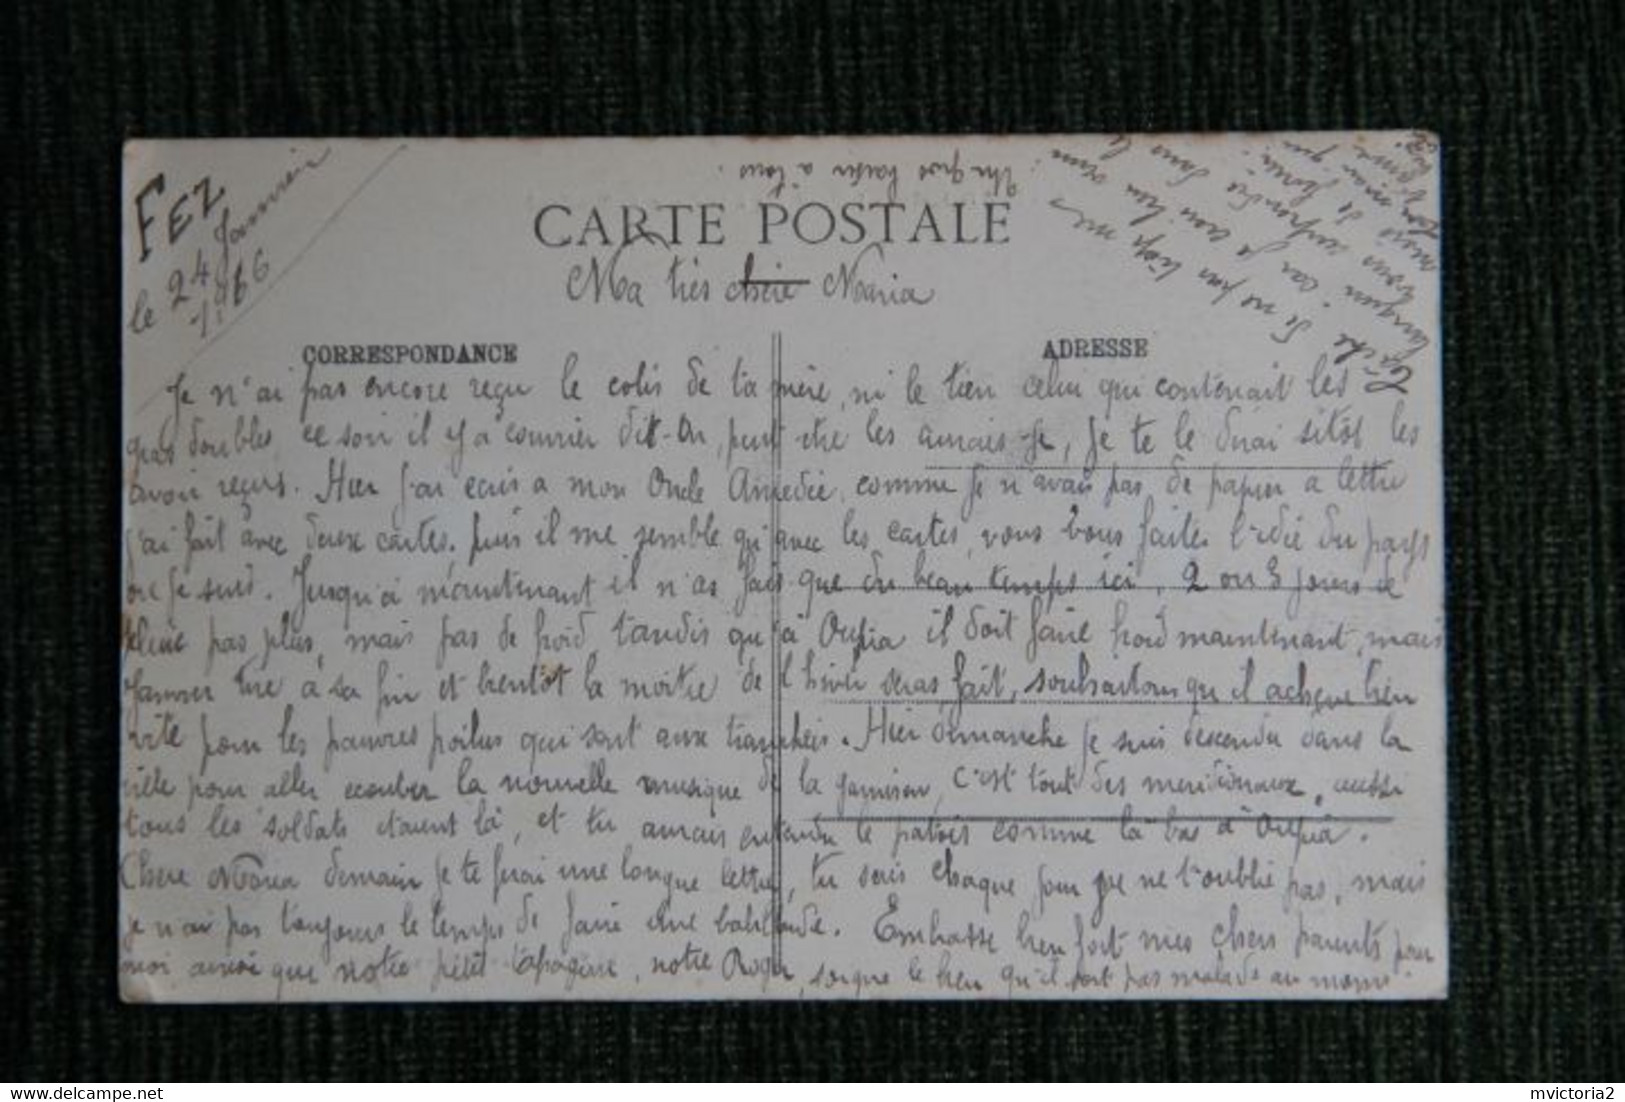 FEZ
le 24 Janvier
1916
Un gros baiser à tous.
CARTE POSTALE
Ma très chère Maria
CORRESPONDANCE
ADRESSE
Je n'ai pas encore reçu le colis de ta mère, ni le tien celui qui contenait les
gras doubles, ce soir il y a courrier dit-on, peut etre les aurais-je, je te le dirai sitot les
avoir reçus. Hier j'ai ecris a mon Oncle Amedée, comme je n'avais pas de papier a lettre
j'ai fait avec deux cartes. puis il me semble qu'avec les cartes, vous vous faites l'idée du pays
ou je suis. Jusqu'a maintenant il n'as fais que du beau temps ici, 2 ou 3 jours de
pluie pas plus, mais pas de froid, tandis qu'à Oupia il doit faire froid maintenant, mais
Janvier tire à sa fin et bientôt la moitié de l'hiver seras fait, souhaitons qu'il achève bien
vite pour les pauvres poilus qui sont aux tranchées. Hier dimanche je suis descendu dans la
ville pour aller ecouter la nouvelle musique de la garnison, c'est tout des meridionaux, aussi
tous les soldats etaient là, et tu aurais entendu le patois comme là bas a Oupia.
Chere Maria demain je te ferai une longue lettre, tu sais chaque jour je ne t'oublie pas, mais
je n'ai pas toujours le temps de faire une
Embrasse bien fort mes chers parents pour
moi ainsi que notre petit tapageur, notre Roger, soigne le bien qu'il soit pas malade au moins.
Tâche de ne pas trop me
languir car je crois bien venir
vous dans le
mois de Juin.
Ton mari qui
t'aime